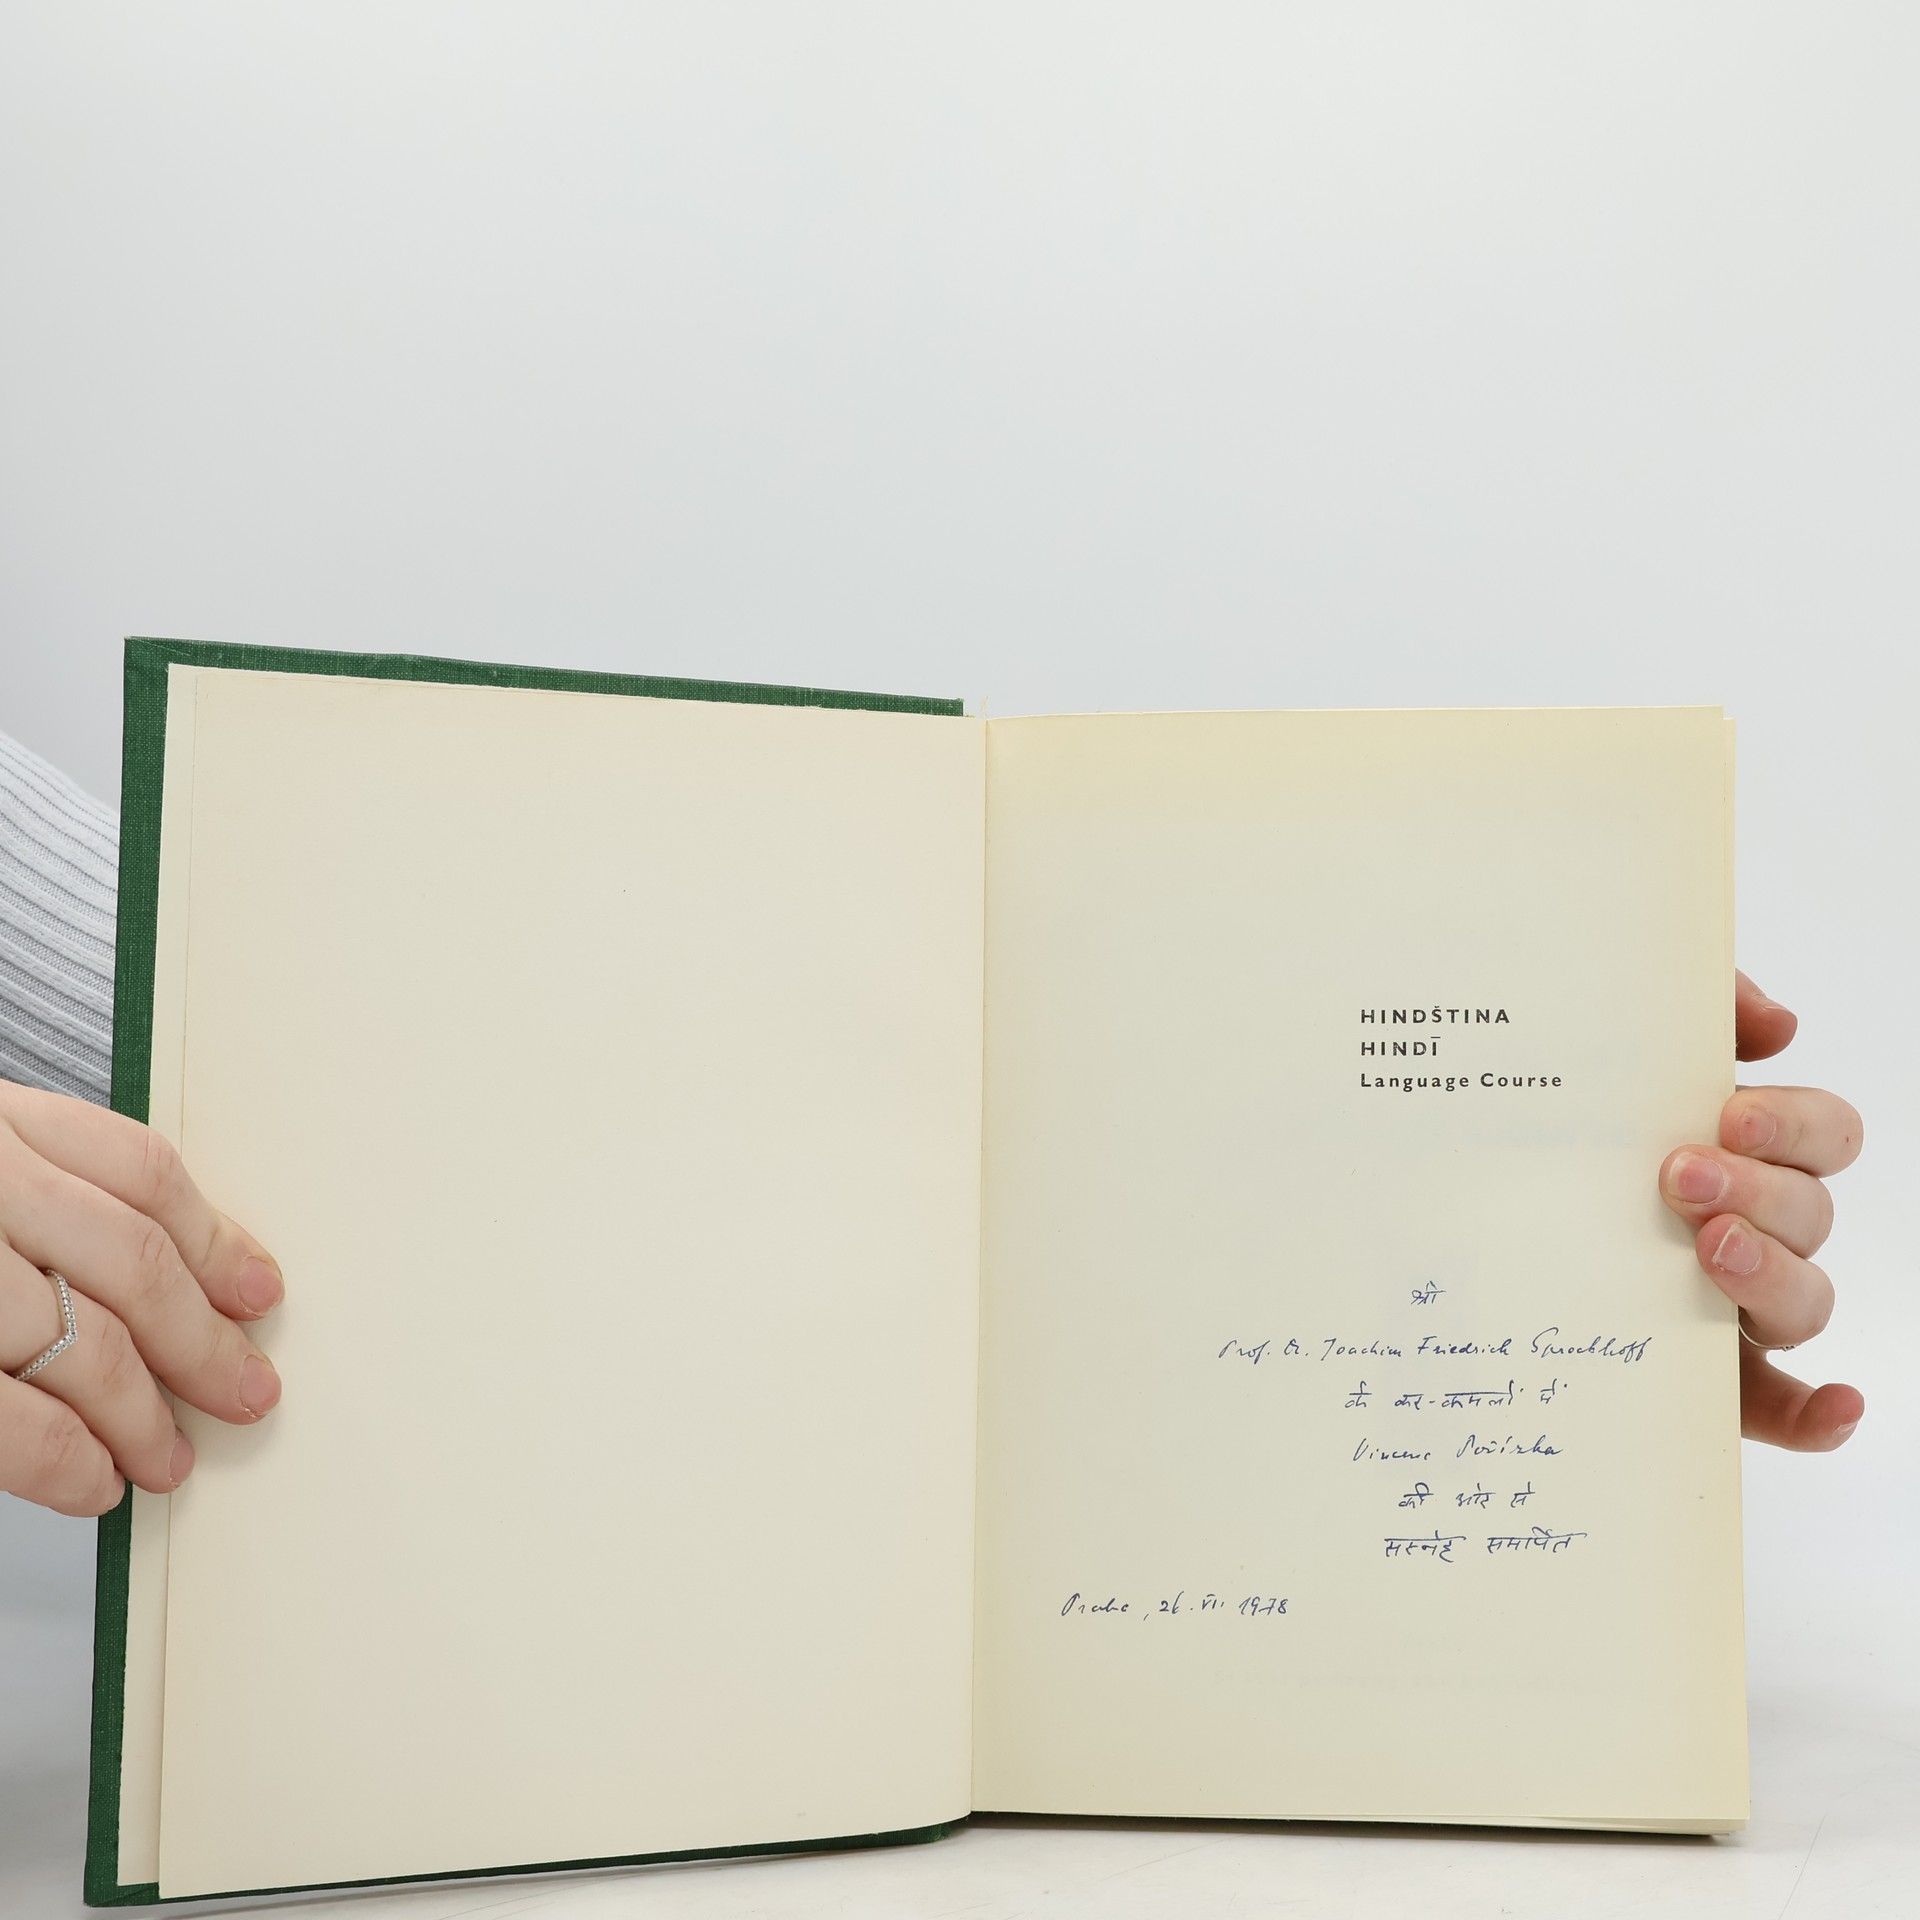 HINDŠTINA
HINDĪ
Language Course
श्री
Prof. Dr. Joachim Friedrich Sprockhoff
के कर-कमलों में
Vincenc Pořízka
की ओर से
सस्नेह समर्पित
Praha, 26. VI. 1978